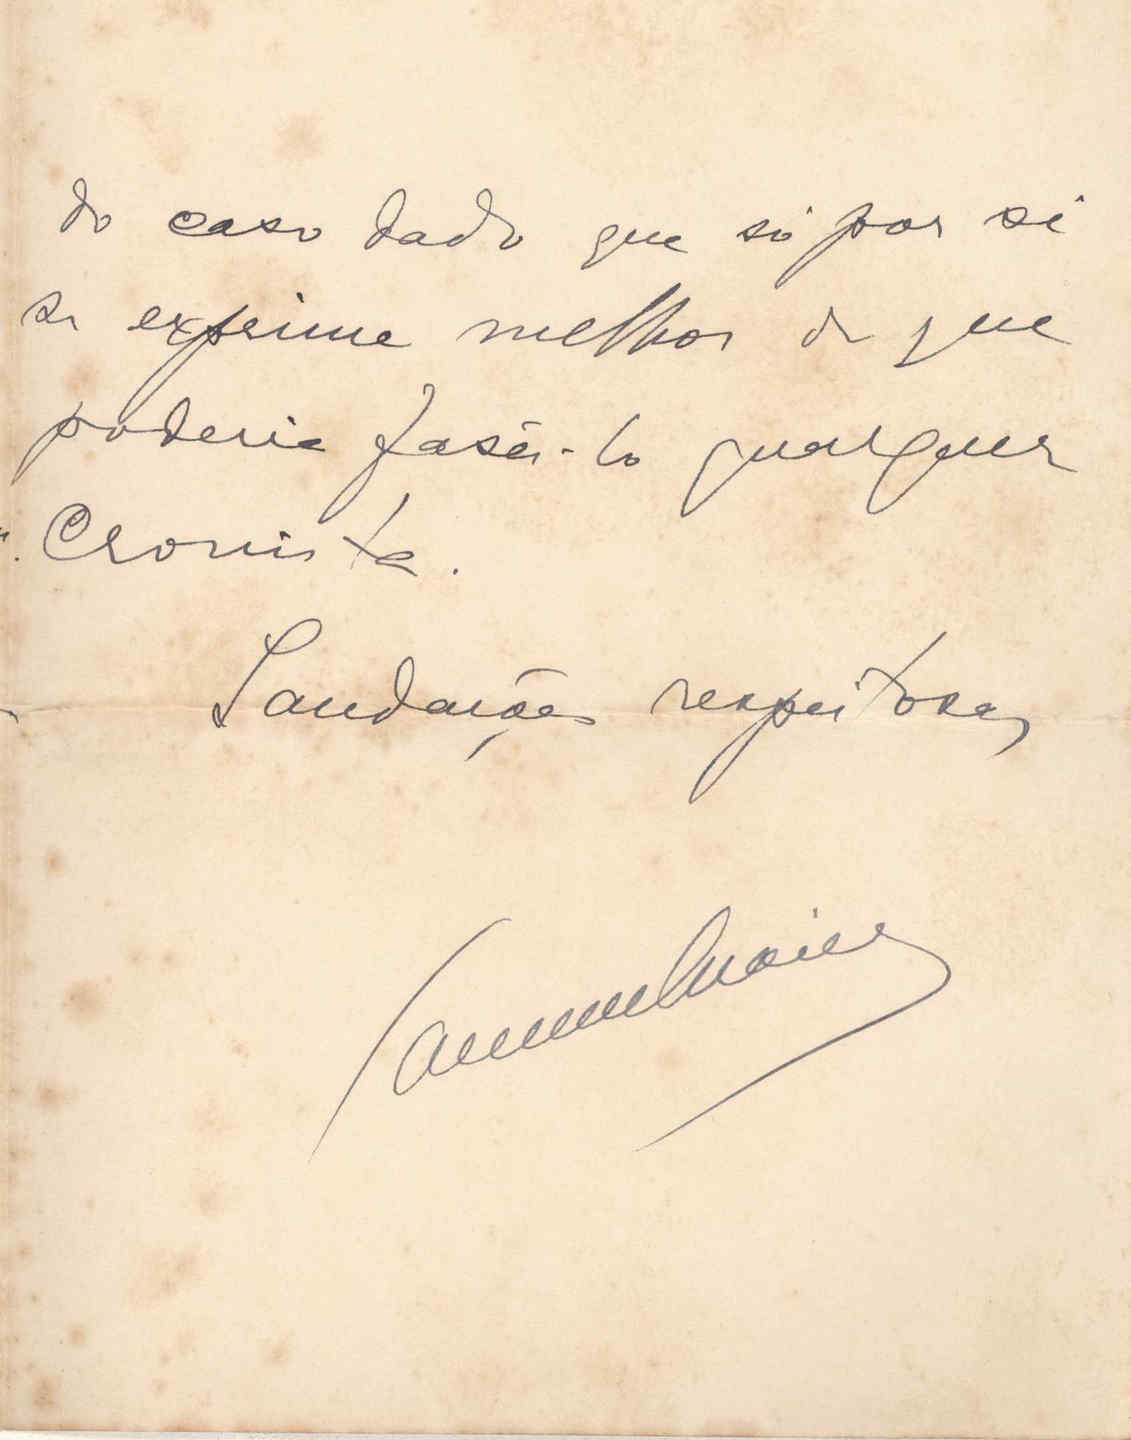 do caso dado que só por si
se exprime melhor do que
poderia fasêr-lo qualquer
Cronista.
Saudações respeitosas